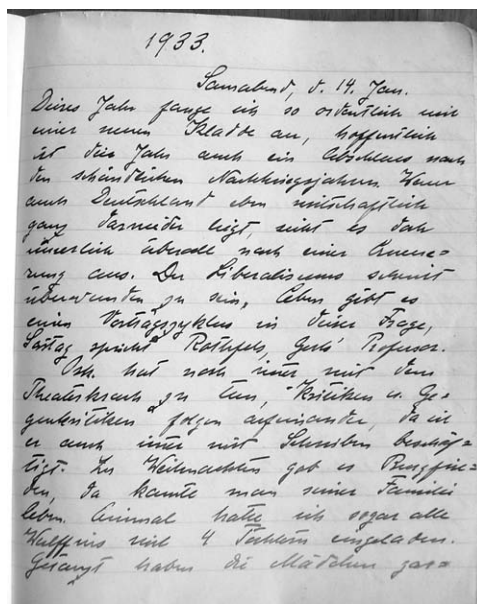 1933.
Sonnabend, d. 14. Jan.
Dieses Jahr fange ich so ordentlich mit
einer neuen Kladde an, hoffentlich
ist dies Jahr auch ein Abschluss nach
den schändlichen Nachkriegsjahren. Wenn
auch Deutschland eben wirtschaftlich
ganz darnieder liegt, sieht es doch
innerlich überall nach einer Erneue=
rung aus. Der Liberalismus scheint
überwunden zu sein, eben gibt es
einen Vortragszyklus in dieser Frage,
spricht Rothfels, Gerh' Professor.
hat noch immer mit dem
Theaterkrach zu tun, Kritiken u. Ge=
genkritiken folgen aufeinander, da ist
er auch immer mit Schreiben beschäf=
tigt. Zu Weihnachten gab es Burgfrie=
den, da konnte man seiner Familie
leben. Einmal hatte ich sogar alle
Wulffins mit 4 Töchtern eingeladen.
Getanzt haben die Mädchen